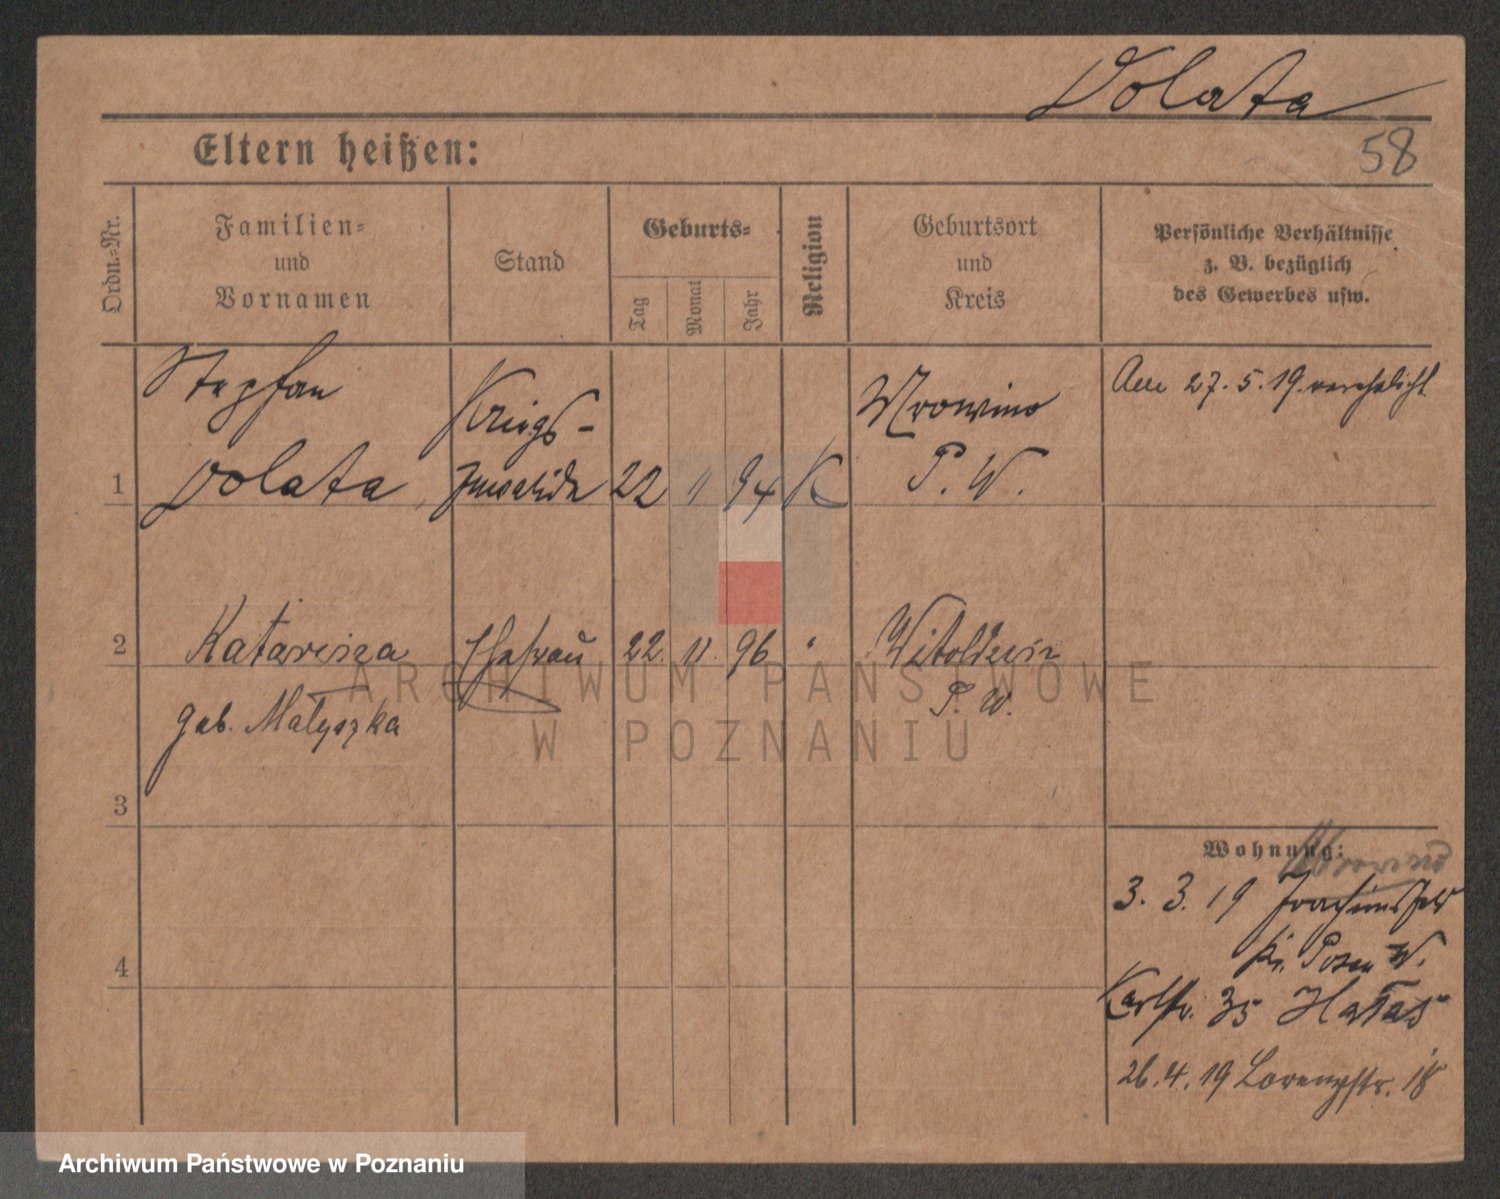 Dolata
58
Eltern heißen:
Ordn.-Nr.
Familien-
und
Vornamen
Stand
Geburts-
Tag
Monat
Jahr
Religion
Geburtsort
und
Kreis
Persönliche Verhältnisse
z. B. bezüglich
des Gewerbes usw.
1
Stephan
Dolata
Kriegs-
Invalide
22
11
94
K
Mrowino
P. W.
Am 27. 5. 19. verehelicht
2
Katarzina
geb. Matyszka
Ehefrau
22.
11.
96
"
P. W.
3
Wohnung:
3. 3. 19 Joachimsfeld
Kr. Posen W.
Karlstr. 35
26. 4. 19 Lorenzstr. 18
4
ARCHIWUM PAŃSTWOWE
W POZNANIU
Archiwum Państwowe w Poznaniu